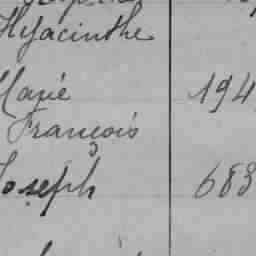 Hyacinthe
Marie 194
François
Joseph 683